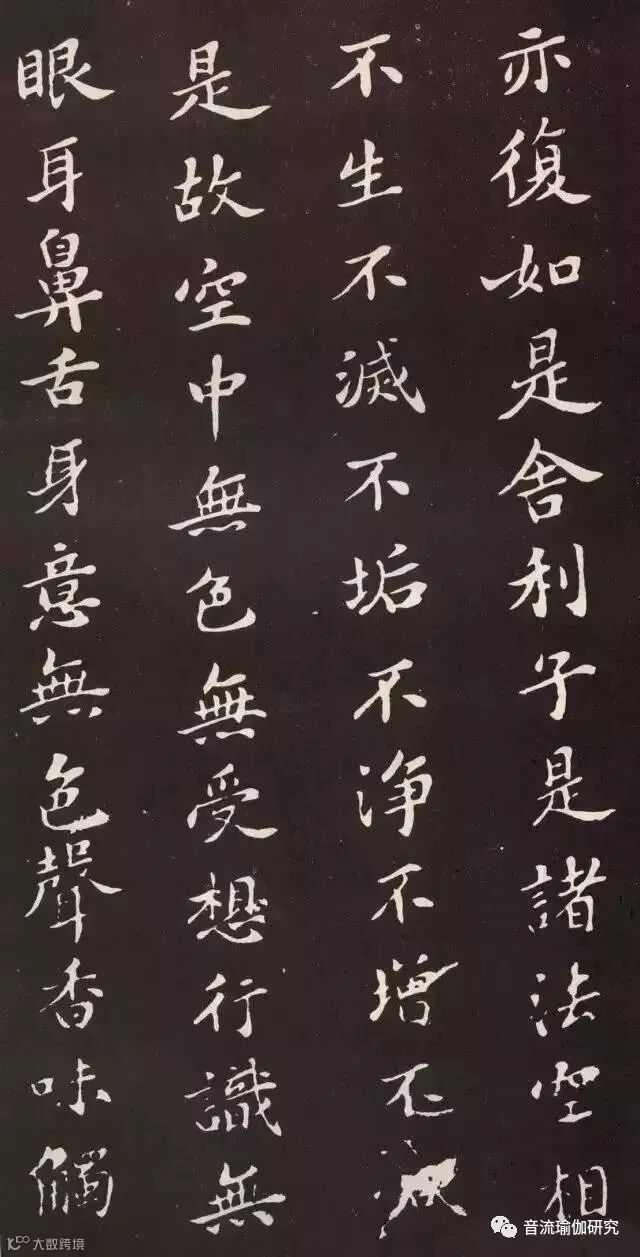 亦復如是舍利子是諸法空相
不生不滅不垢不淨不增不減
是故空中無色無受想行識無
眼耳鼻舌身意無色聲香味觸
音流瑜伽研究
大数跨境